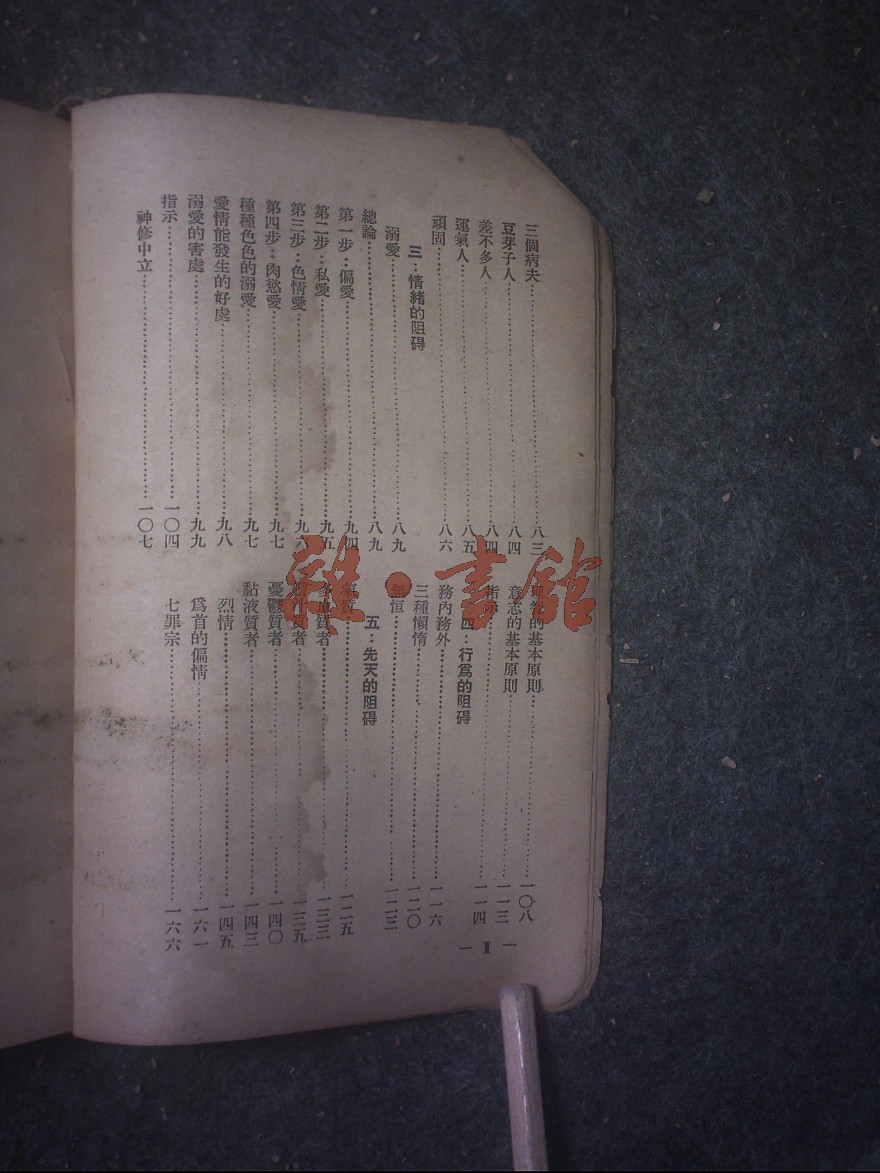 三個病夫……八三
豆芽子人……八四
差不多人……八四
運氣人……八五
頑固……八六
三：情緒的阻碍
溺愛……八九
總論……八九
第一步：偏愛……九四
第二步：私愛……九五
第三步：色情愛……九六
第四步：肉慾愛……九七
種種色色的溺愛……九七
愛情能發生的好處……九八
溺愛的害處……九九
指示……一〇四
神修中立……一〇七
的基本原則……一〇八
意志的基本原則……一一三
指示……一一四
四：行爲的阻碍
務內務外……一一六
三種懶惰……一二〇
無恒……一二三
五：先天的阻碍
質……一二五
多血質者……一三三
胆汁質者……一三五
憂鬱質者……一四〇
黏液質者……一四三
烈情……一四五
爲首的偏情……一六一
七罪宗……一六六
— II —
雜·書館